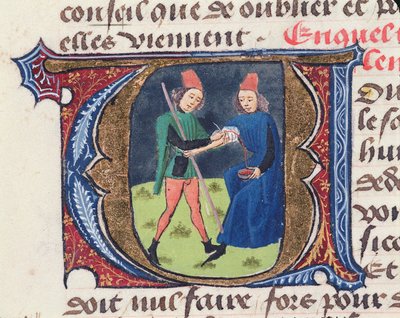 conseil que de oublier et p
elles viennent. Enquel
len
Du
le so
hui
dedo
voi
sico
Et
doit nul faire fors pour s